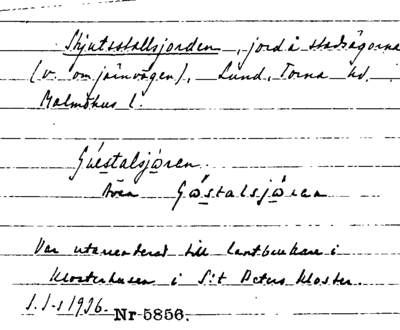 Skjutsstallsjorden, jord å stadsägorna
(v. om järnvägen), Lund, Torna hd.
Malmöhus l.
Även
Var utarrenderat till lantbrukare i
Klosterhusen i S:t Peters Kloster.
1936. Nr 5856.